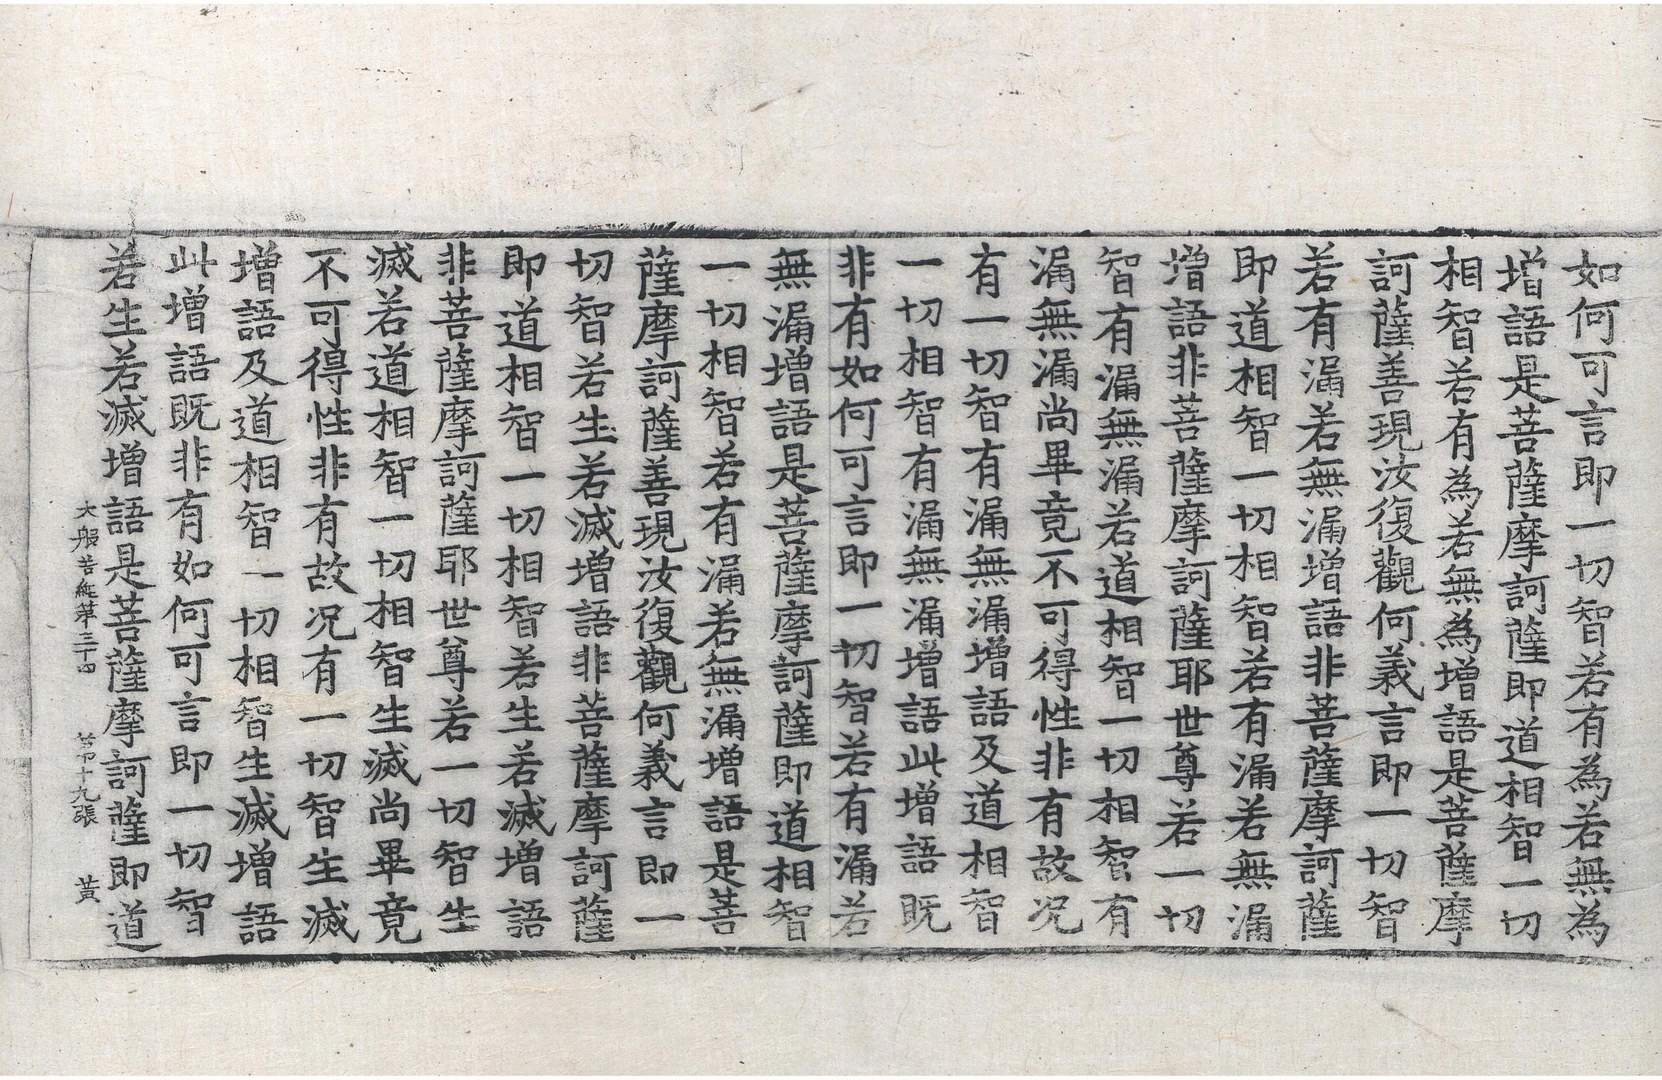 如何可言即一切智若有為若無為
增語是菩薩摩訶薩即道相智一切
相智若有為若無為增語是菩薩摩
訶薩善現汝復觀何義言即一切智
若有漏若無漏增語非菩薩摩訶薩
即道相智一切相智若有漏若無漏
增語非菩薩摩訶薩耶世尊若一切
智有漏無漏若道相智一切相智有
漏無漏尚畢竟不可得性非有故况
有一切智有漏無漏增語及道相智
一切相智有漏無漏增語此增語既
非有如何可言即一切智若有漏若
無漏增語是菩薩摩訶薩即道相智
一切相智若有漏若無漏增語是菩
薩摩訶薩善現汝復觀何義言即一
切智若生若滅增語非菩薩摩訶薩
即道相智一切相智若生若滅增語
非菩薩摩訶薩耶世尊若一切智生
滅若道相智一切相智生滅尚畢竟
不可得性非有故况有一切智生滅
增語及道相智一切相智生滅增語
此增語既非有如何可言即一切智
若生若滅增語是菩薩摩訶薩即道
大般若經第三十四 第十九張 黃